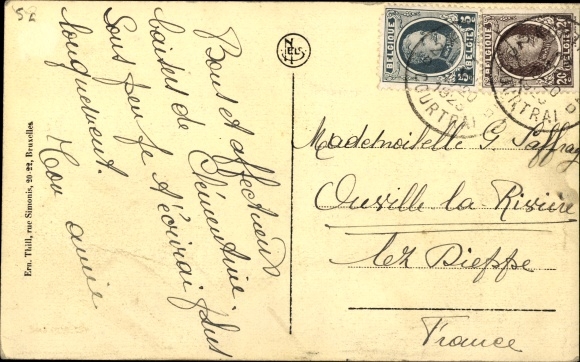 52
Bons et affectueux
baisers de Clémentine.
Sous peu je t'écrirai plus
longuement.
Ton amie
Ern. Thill, rue Simonis, 20-22, Bruxelles
NELS
BELGIQUE
5c
BELGIE
BELGIQUE
20c
BELGIE
COURTRAI
COURTRAI
Mademoiselle G. Saffray
Ouville-la-Rivière
lez Dieppe
France